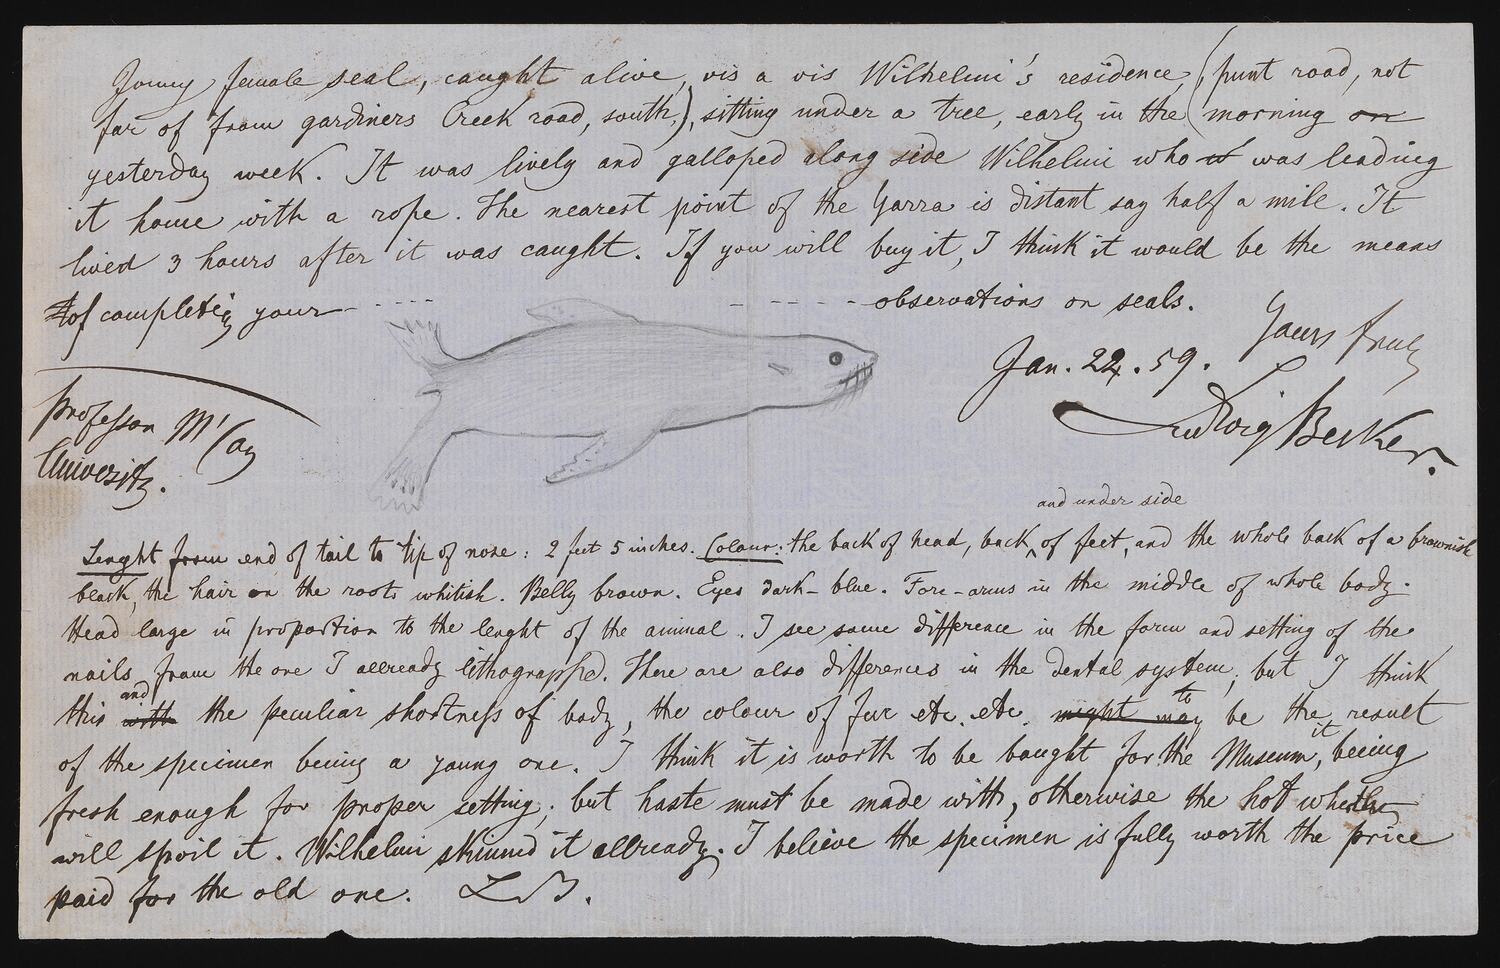 Young female seal, caught alive, vis a vis Wilhelmi's residence, (punt road, not
far of from gardiners Creek road, south,), sitting under a tree, early in the morning on
yesterday week. It was lively and galloped along side Wilhelmi who it was leading
it home with a rope. The nearest point of the Yarra is distant say half a mile. It
lived 3 hours after it was caught. If you will buy it, I think it would be the means
of completing your - - - - - - - - - observations on seals.
Yours truly
Jan. 22. 59.
Ludwig Becker.
Professor M'Coy
University.
and under side
Lenght from end of tail to tip of nose: 2 feet 5 inches. Colour: the back of head, back of feet, and the whole back of a brownish
black, the hair on the roots whitish. Belly brown. Eyes dark-blue. Fore-arms in the middle of whole body.
Head large in proportion to the lenght of the animal. I see some difference in the form and setting of the
nails from the one I allready lithographed. There are also differences in the dental system; but I think
this with and the peculiar shortness of body, the colour of fur etc. etc. might may to be the result
of the specimen being a young one. I think it is worth to be bought for the Museum, it beeing
fresh enough for proper setting; but haste must be made with, otherwise the hot whether
will spoil it. Wilhelmi skinned it allready. I believe the specimen is fully worth the price
paid for the old one. LB.